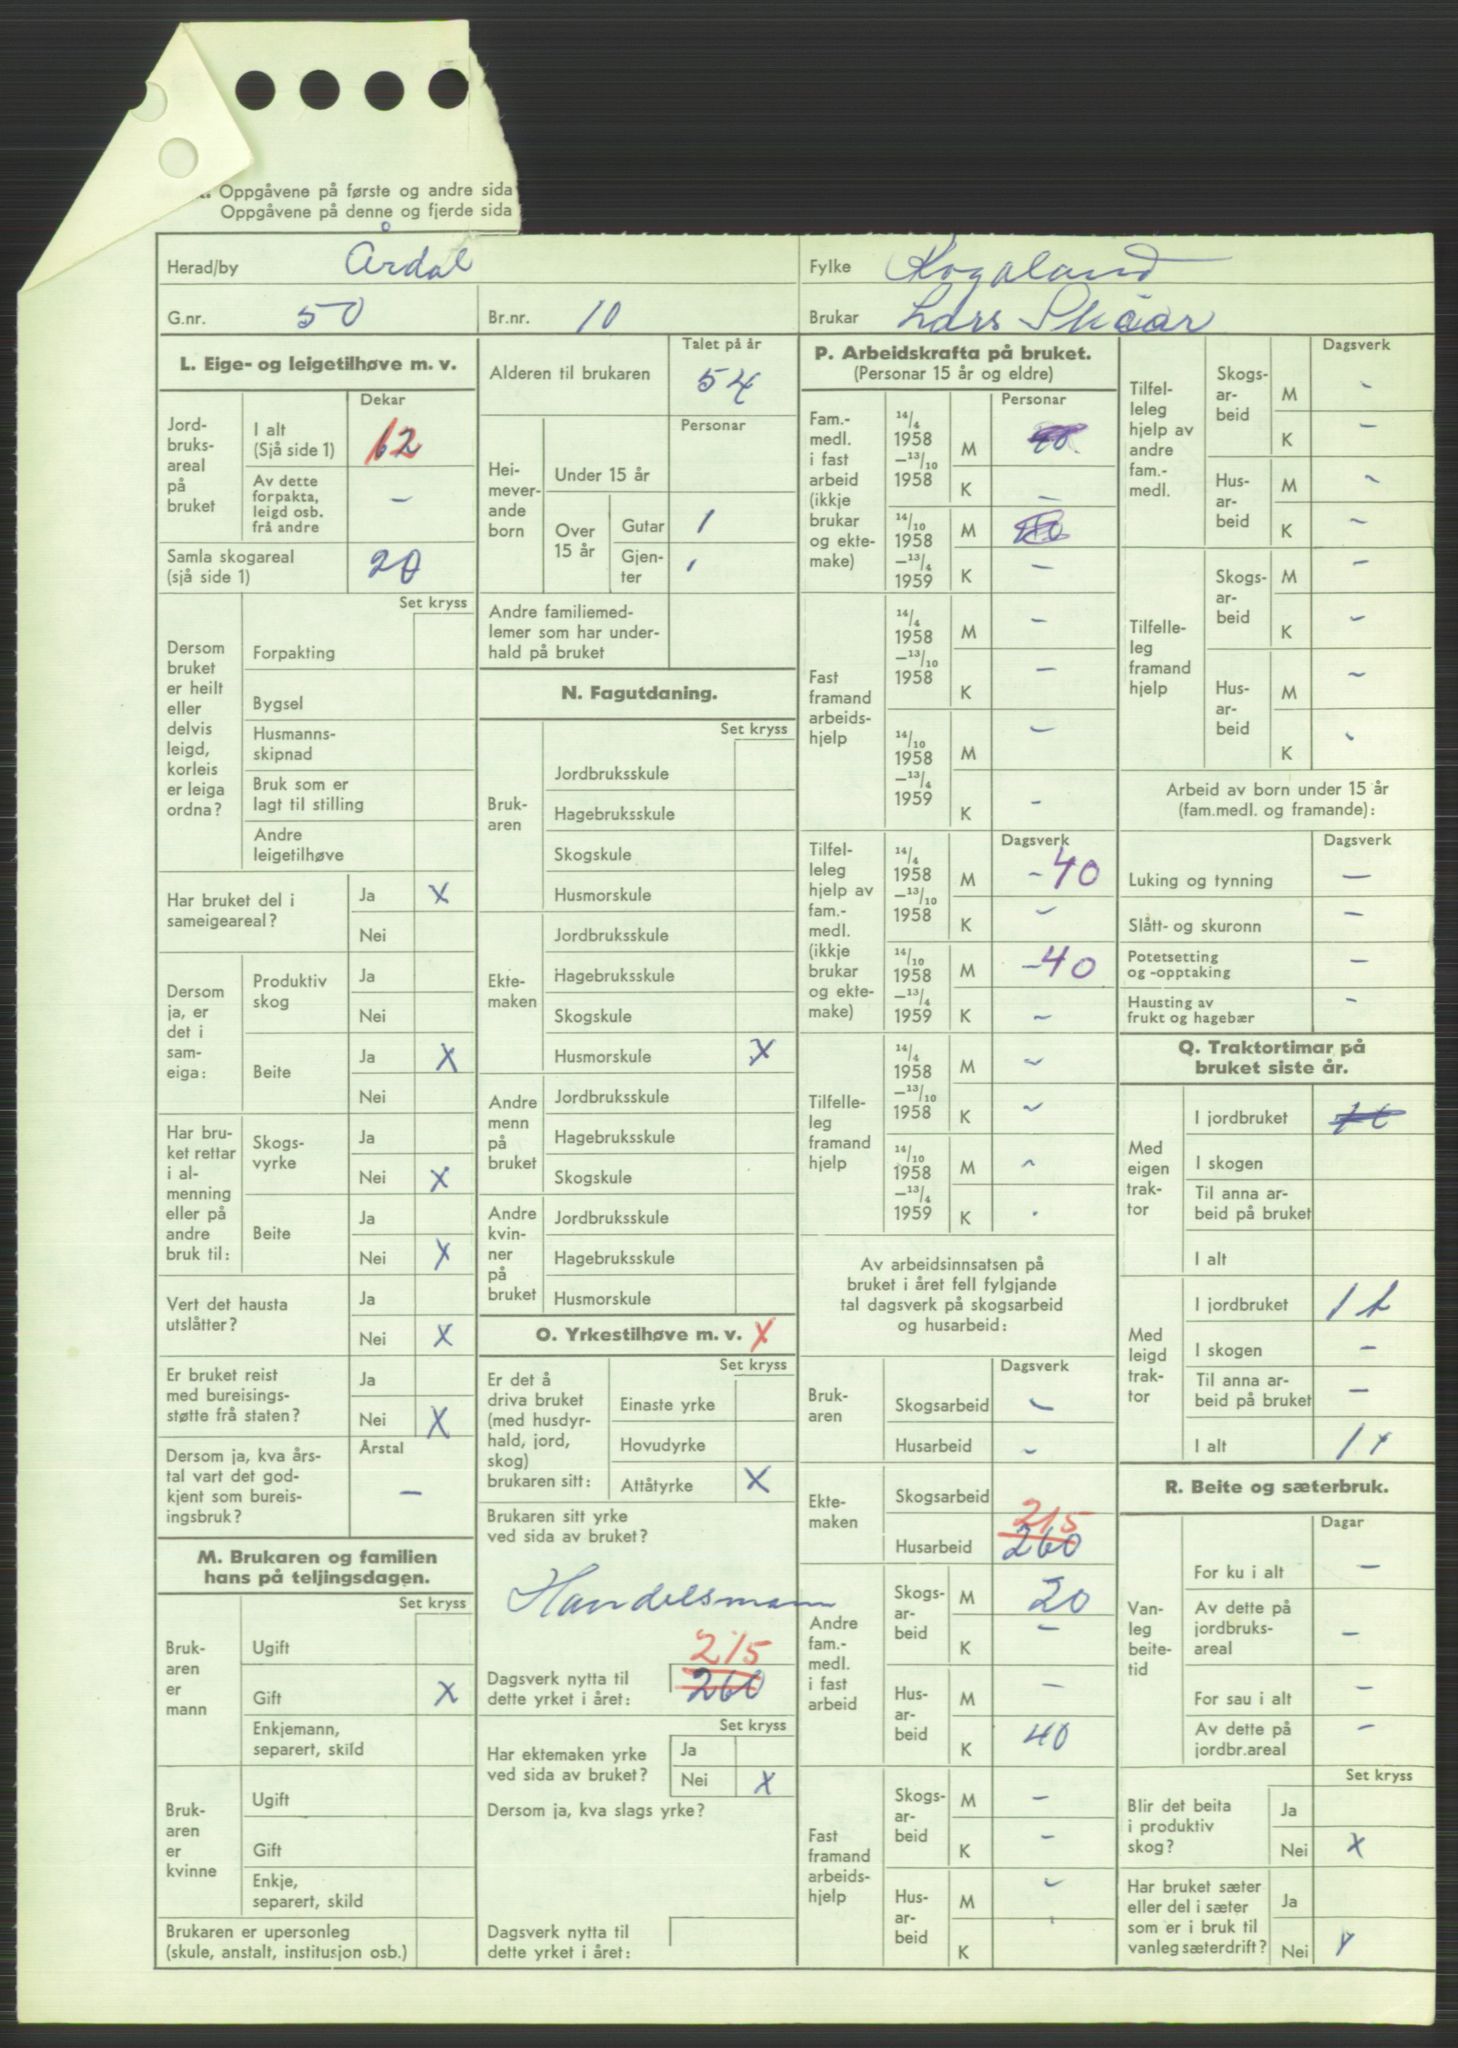 Oppgåvene på første og andre sida
Oppgåvene på denne og fjerde sida
Herad/by Årdal
Fylke Rogaland
G.nr. 50 Br.nr. 10
Brukar Lars Skåar
L. Eige- og leigetilhøve m. v.
Dekar
Jordbruksareal på bruket
I alt (Sjå side 1) 62
Av dette forpakta, leigd osb. frå andre –
Samla skogareal (sjå side 1) 20
Set kryss
Dersom bruket er heilt eller delvis leigd, korleis er leiga ordna?
Forpakting
Bygsel
Husmannsskipnad
Bruk som er lagt til stilling
Andre leigetilhøve
Har bruket del i sameigeareal?
Ja X
Nei
Dersom ja, er det i sameiga:
Produktiv skog
Ja
Nei
Beite
Ja X
Nei
Har bruket rettar i almenning eller på andre bruk til:
Skogsvyrke
Ja
Nei X
Beite
Ja
Nei X
Vert det hausta utslåtter?
Ja
Nei X
Er bruket reist med bureisingsstøtte frå staten?
Ja
Nei X
Dersom ja, kva årstal vart det godkjent som bureisingsbruk?
Årstal
–
M. Brukaren og familien hans på teljingsdagen.
Set kryss
Brukaren er mann
Ugift
Gift X
Enkjemann, separert, skild
Brukaren er kvinne
Ugift
Gift
Enkje, separert, skild
Brukaren er upersonleg (skule, anstalt, institusjon osb.)
Talet på år
Alderen til brukaren 54
Personar
Heimeverande born
Under 15 år
Over 15 år
Gutar 1
Gjenter 1
Andre familiemedlemer som har underhald på bruket
N. Fagutdaning.
Set kryss
Brukaren
Jordbruksskule
Hagebruksskule
Skogskule
Husmorskule
Ektemaken
Jordbruksskule
Hagebruksskule
Skogskule
Husmorskule X
Andre menn på bruket
Jordbruksskule
Hagebruksskule
Skogskule
Andre kvinner på bruket
Jordbruksskule
Hagebruksskule
Husmorskule
O. Yrkestilhøve m. v. X
Set kryss
Er det å driva bruket (med husdyrhald, jord, skog) brukaren sitt:
Einaste yrke
Hovudyrke
Attåtyrke X
Brukaren sitt yrke ved sida av bruket?
Handelsmann
215
Dagsverk nytta til dette yrket i året: 260
Set kryss
Har ektemaken yrke ved sida av bruket?
Ja
Nei X
Dersom ja, kva slags yrke?
Dagsverk nytta til dette yrket i året:
P. Arbeidskrafta på bruket.
(Personar 15 år og eldre)
Personar
Fam.medl. i fast arbeid (ikkje brukar og ektemake)
14/4 1958 –13/10 1958
M
K –
14/10 1958 –13/4 1959
M
K –
Fast framand arbeidshjelp
14/4 1958 –13/10 1958
M –
K –
14/10 1958 –13/4 1959
M –
K –
Dagsverk
Tilfelleleg hjelp av fam.medl. (ikkje brukar og ektemake)
14/4 1958 –13/10 1958
M –40
K –
14/10 1958 –13/4 1959
M –40
K –
Tilfelleleg framand hjelp
14/4 1958 –13/10 1958
M –
K –
14/10 1958 –13/4 1959
M –
K –
Av arbeidsinnsatsen på bruket i året fell fylgjande tal dagsverk på skogsarbeid og husarbeid:
Dagsverk
Brukaren
Skogsarbeid –
Husarbeid –
Ektemaken
Skogsarbeid
215
Husarbeid 260
Andre fam.medl. i fast arbeid
Skogsarbeid
M 20
K –
Husarbeid
M –
K 40
Fast framand arbeidshjelp
Skogsarbeid
M –
K –
Husarbeid
M –
K
Dagsverk
Tilfelleleg hjelp av andre fam.medl.
Skogsarbeid
M –
K –
Husarbeid
M –
K –
Tilfelleleg framand hjelp
Skogsarbeid
M –
K –
Husarbeid
M –
K –
Arbeid av born under 15 år (fam.medl. og framande):
Dagsverk
Luking og tynning –
Slått- og skuronn –
Potetsetting og -opptaking –
Hausting av frukt og hagebær –
Q. Traktortimar på bruket siste år.
Med eigen traktor
I jordbruket
I skogen
Til anna arbeid på bruket
I alt
Med leigd traktor
I jordbruket
I skogen –
Til anna arbeid på bruket –
I alt
R. Beite og sæterbruk.
Dagar
Vanleg beitetid
For ku i alt –
Av dette på jordbruksareal –
For sau i alt –
Av dette på jordbr.areal –
Set kryss
Blir det beita i produktiv skog?
Ja
Nei X
Har bruket sæter eller del i sæter som er i bruk til vanleg sæterdrift?
Ja
Nei X